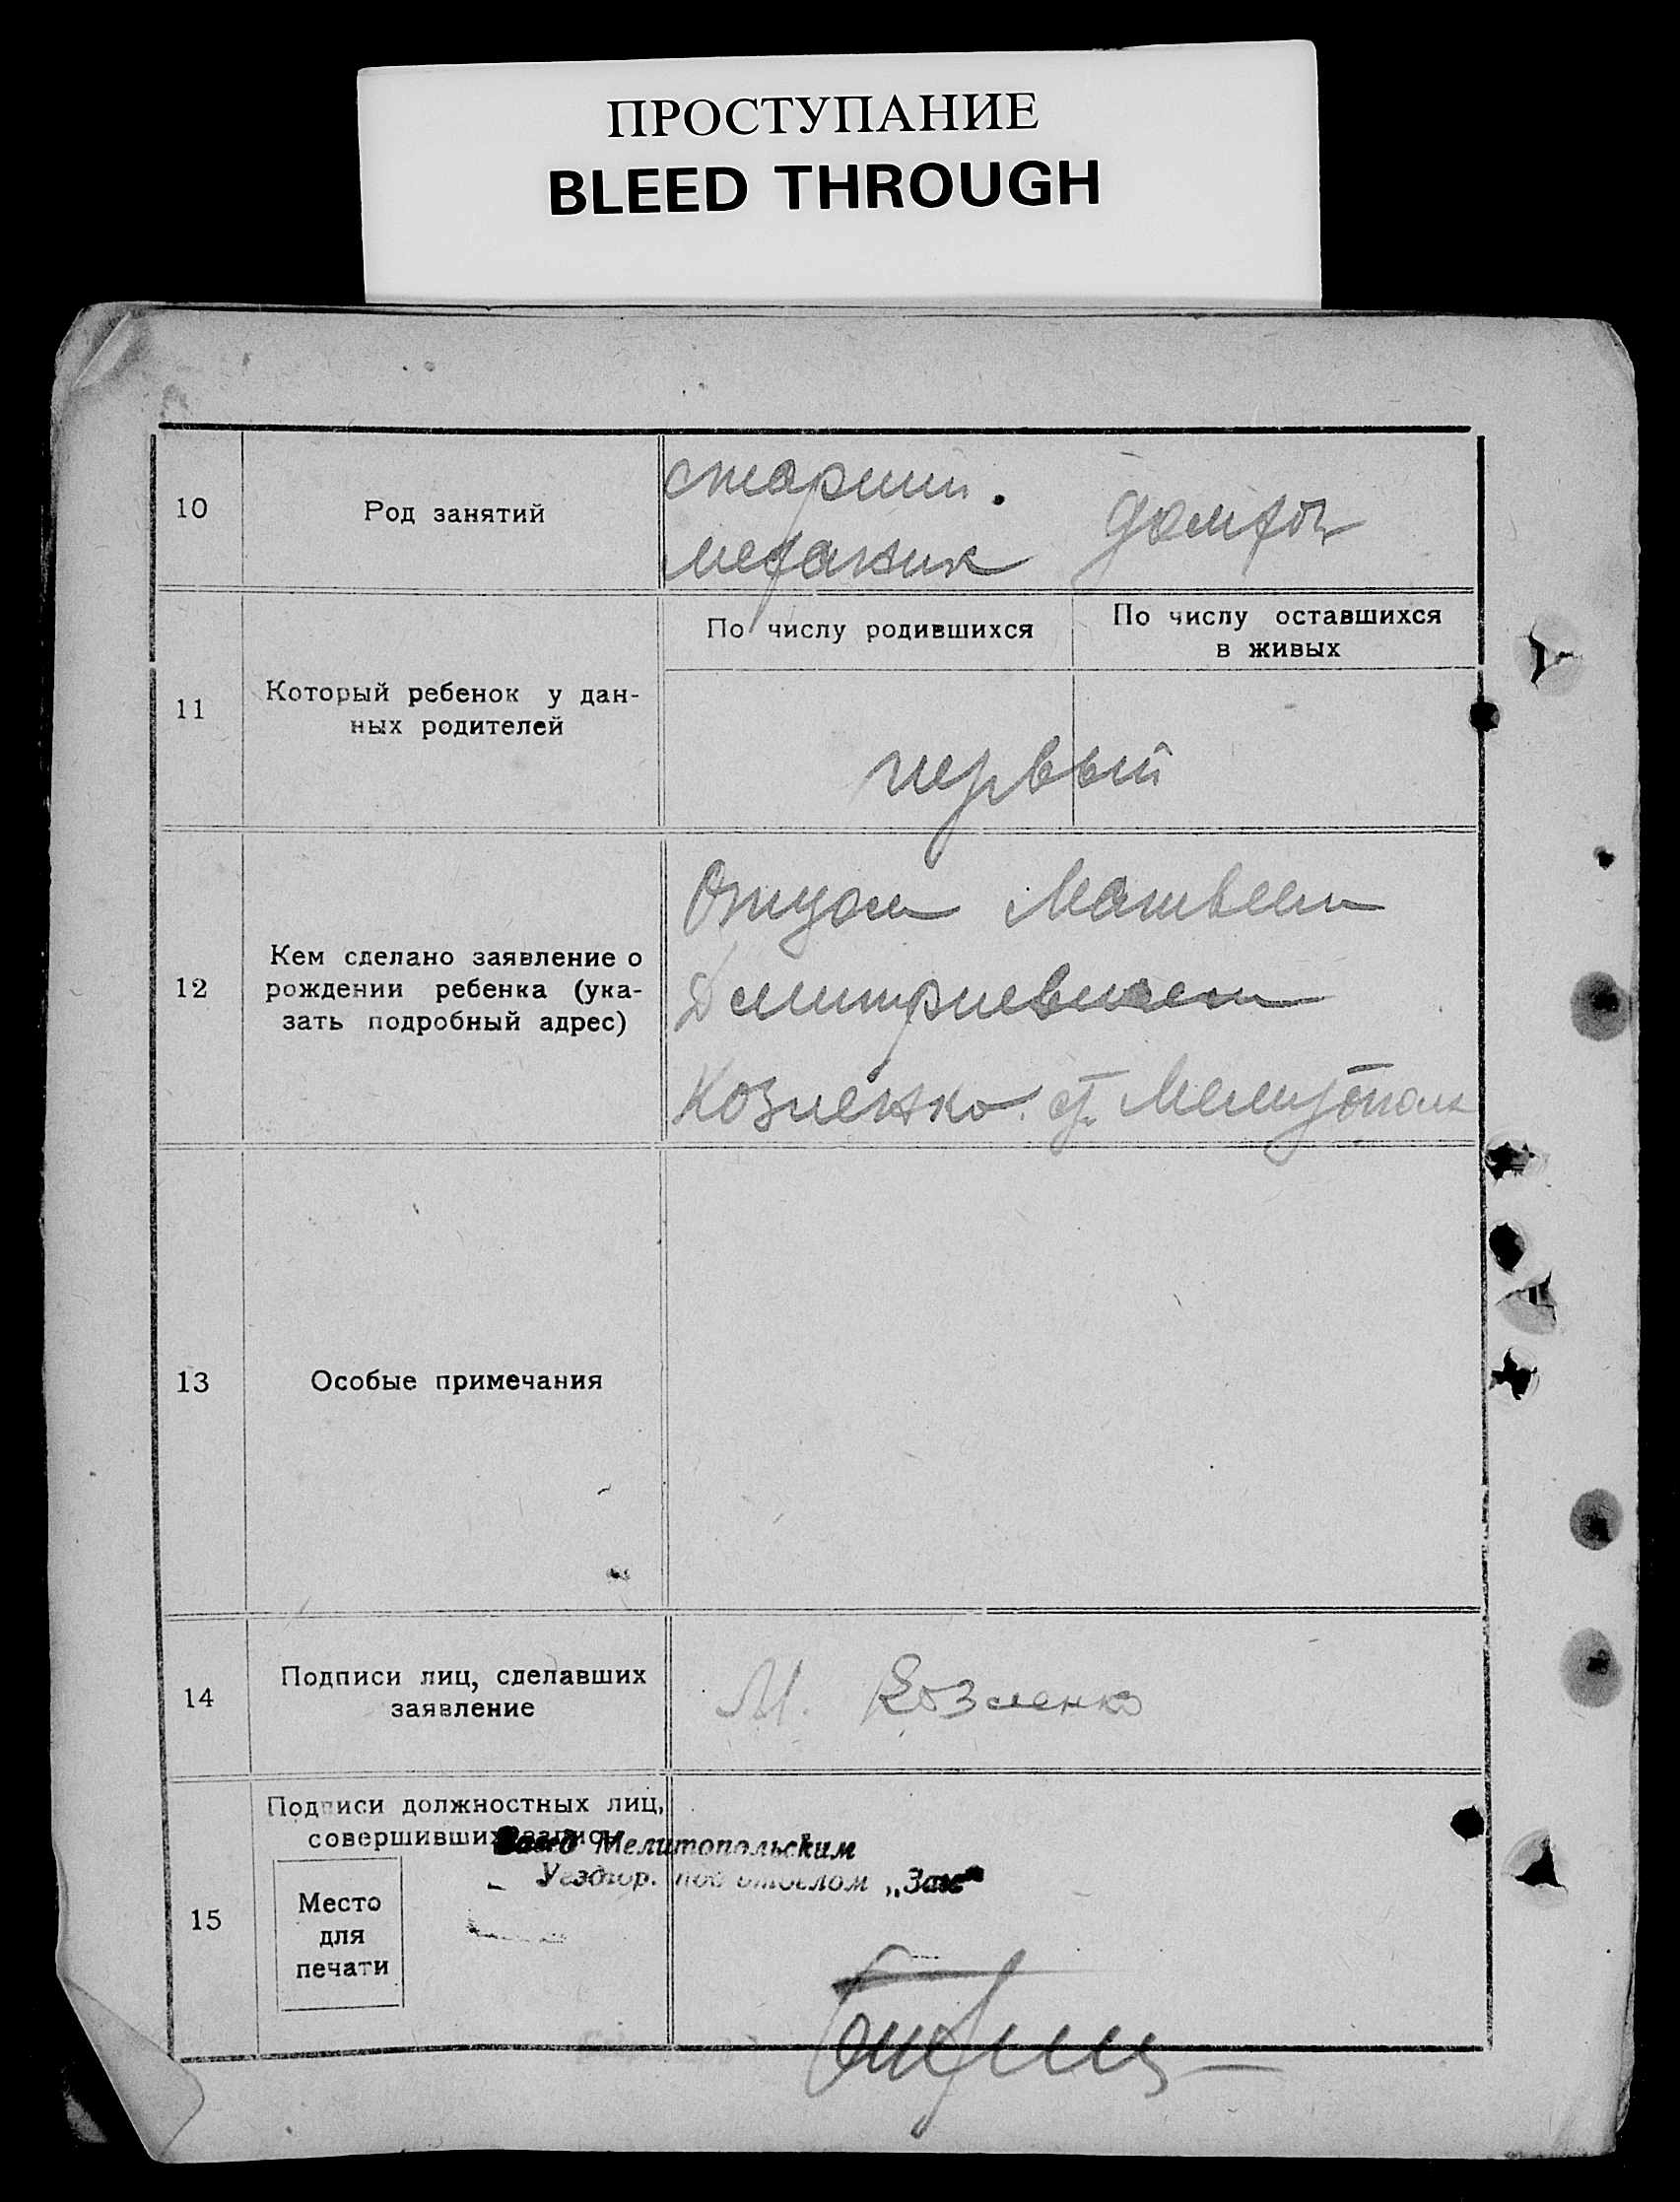 ПРОСТУПАНИЕ
BLEED THROUGH
10
Род занятий
старший
механик
домхоз
11
Который ребенок у дан-
ных родителей
По числу родившихся
По числу оставшихся
в живых
первый
12
Кем сделано заявление о
рождении ребенка (ука-
зать подробный адрес)
Отцом Матвеем
Дмитриевичем
Козленко. ст. Мелитополь
13
Особые примечания
14
Подписи лиц, сделавших
заявление
М. Козленко
15
Подписи должностных лиц,
совершивших запись
Место
для
печати
Мелитопольским
под отделом „Заг“